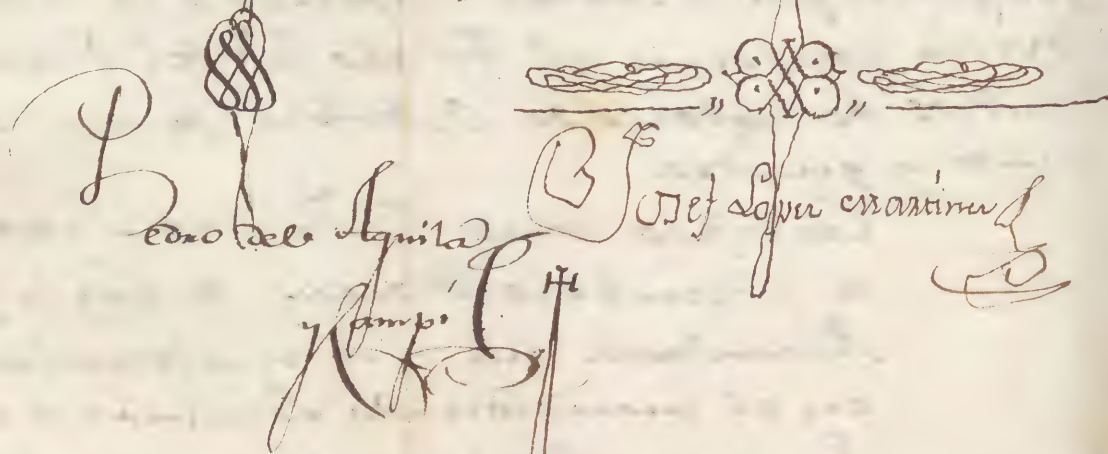 Pedro de la Aguila
y Campi
B Josef Lopez Martinez